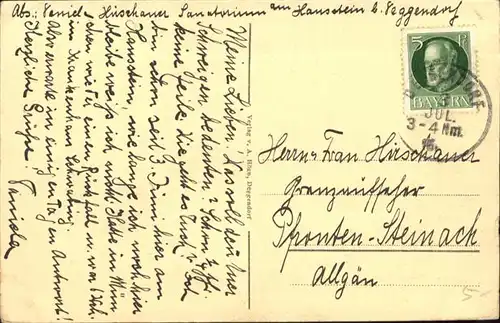 Abs.: Hirschauer Sanatorium am Hausstein b. Deggendorf
Meine Lieben. Was soll den Euer
Schweigen bedeuten? Schon
keine Zeile. Wie geht es Euch? Ich
bin schon seit 3. Juni hier am
Hausstein, wie lange ich noch hier
bleibe weiß ich noch nicht. Habe in Mün
chen wieder einen Rückfall u. war
im Krankenhaus Schwabing
Also erwarte in einigen Tagen Antwort!
Herzliche Grüße.
Verlag v. Deggendorf
5 PF
BAYERN
JUL.
3-4 Nm.
Herrn u. Frau Hirschauer
Grenzaufseher
Pfronten-Steinach
Allgäu
5-